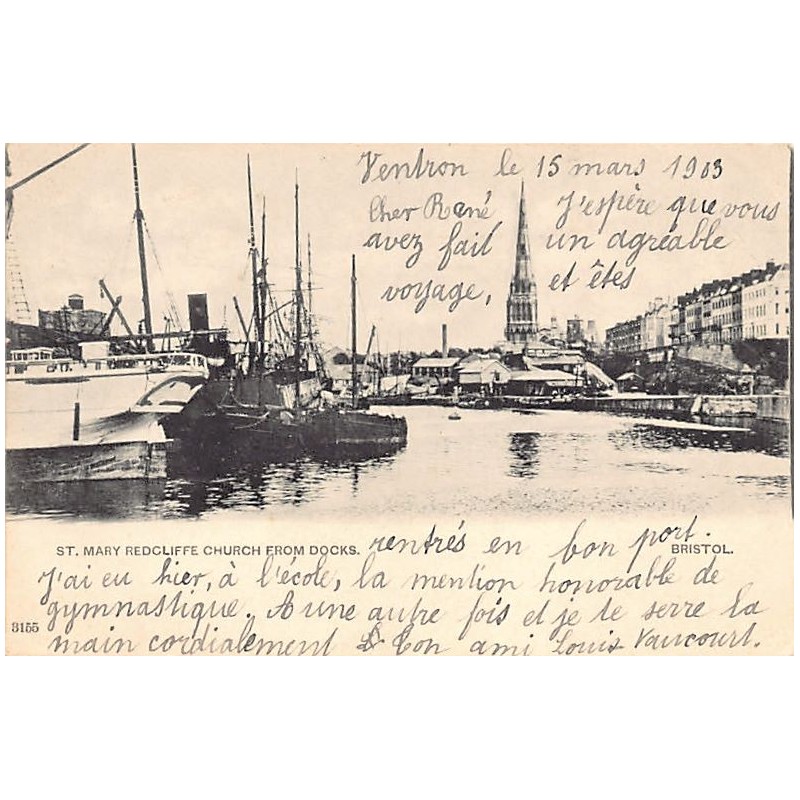 Ventron le 15 mars 1903
Cher René J'espère que vous
avez fait un agréable
voyage, et êtes
ST. MARY REDCLIFFE CHURCH FROM DOCKS. rentrés en bon port.
BRISTOL.
J'ai eu hier, à l'école, la mention honorable de
gymnastique. A une autre fois et je te serre la
3155
main cordialement Ton ami Louis Vaucourt.